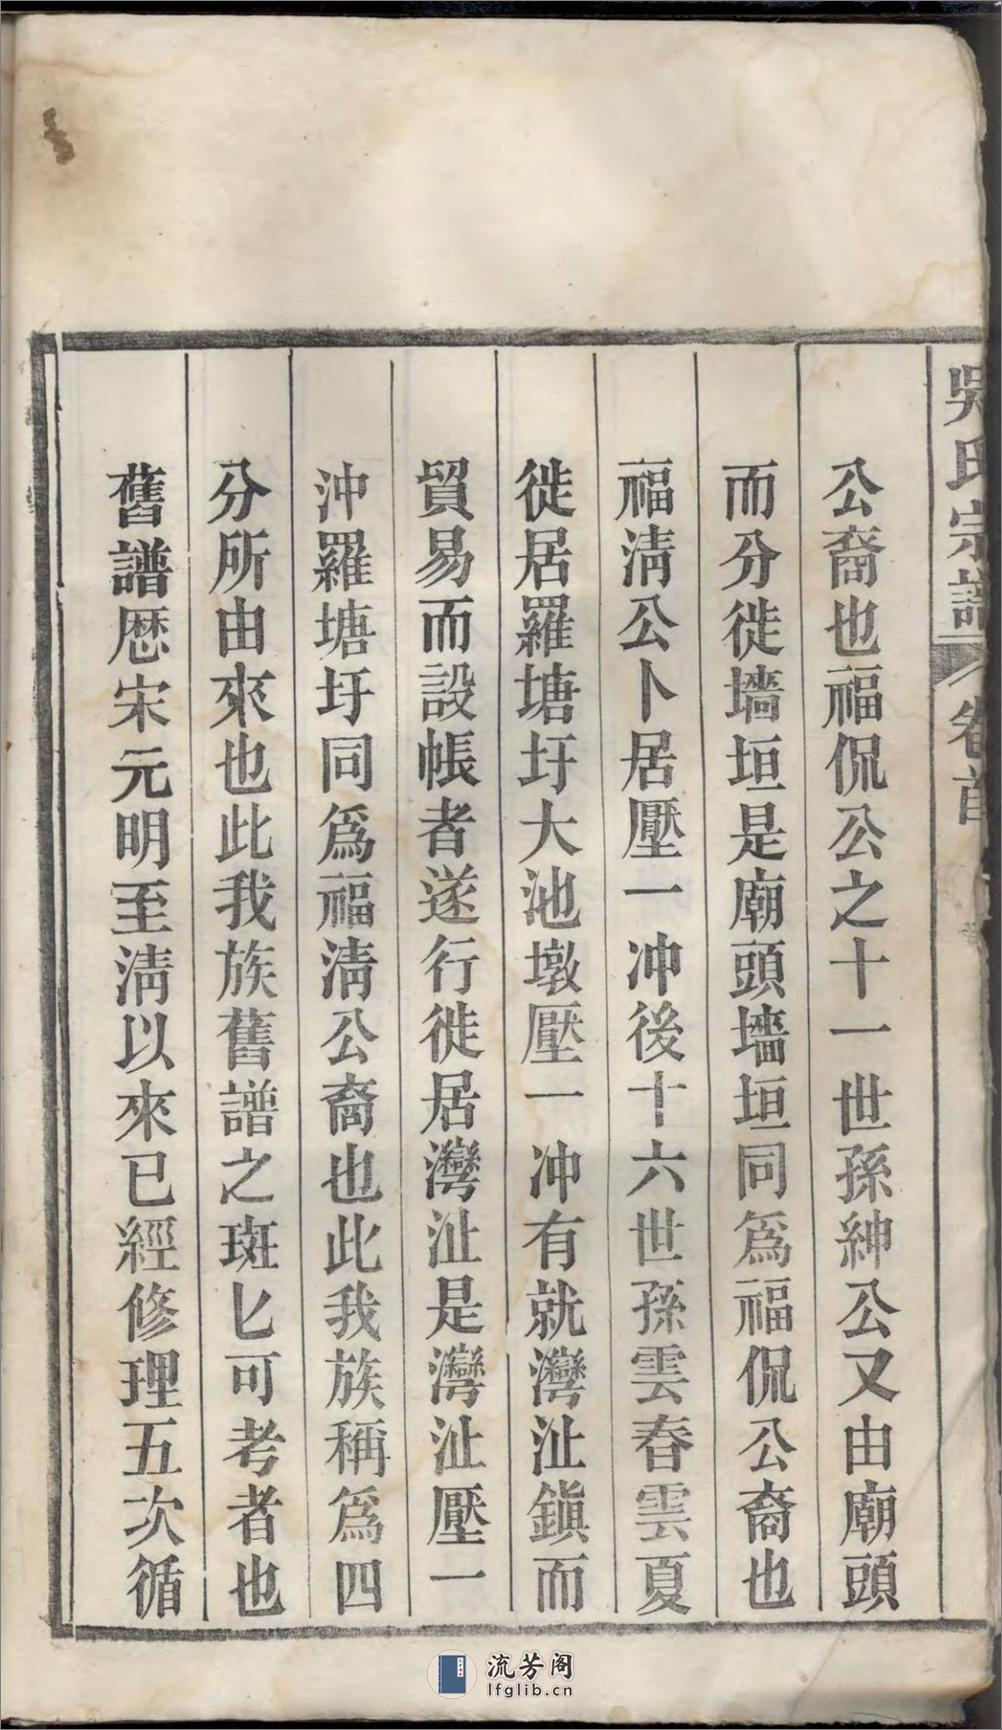 吳氏宗譜 卷首
公裔也福侃公之十一世孫紳公又由廟頭
而分徙墻垣是廟頭墻垣同爲福侃公裔也
福淸公卜居壓一冲後十六世孫雲春雲夏
徙居羅塘圩大池墩壓一冲有就灣沚鎭而
貿易而設帳者遂行徙居灣沚是灣沚壓一
沖羅塘圩同爲福淸公裔也此我族稱爲四
分所由來也此我族舊譜之斑匕可考者也
舊譜歷宋元明至淸以來已經修理五次循
流芳阁
lfglib.cn